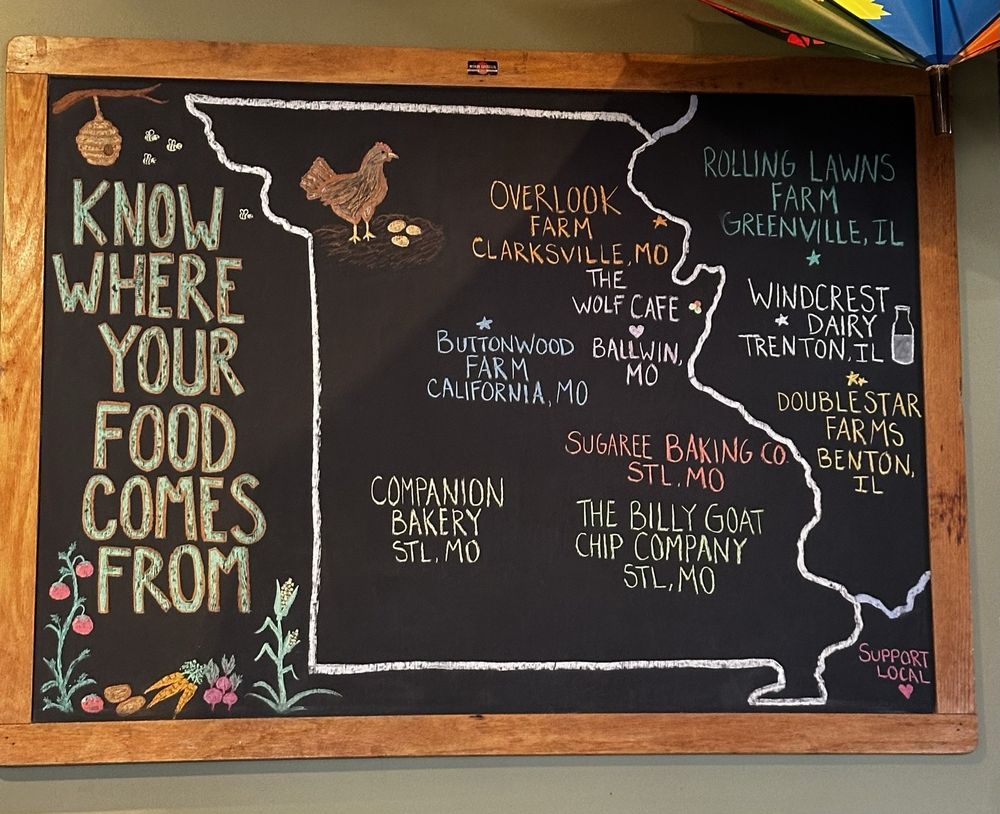 KNOW
WHERE
YOUR
FOOD
COMES
FROM
OVERLOOK
FARM
CLARKSVILLE, MO
THE
WOLF CAFE
BALLWIN,
MO
BUTTONWOOD
FARM
CALIFORNIA, MO
SUGAREE BAKING CO.
STL, MO
COMPANION
BAKERY
STL, MO
THE BILLY GOAT
CHIP COMPANY
STL, MO
ROLLING LAWNS
FARM
GREENVILLE, IL
WINDCREST
DAIRY
TRENTON, IL
DOUBLE STAR
FARMS
BENTON,
IL
SUPPORT
LOCAL